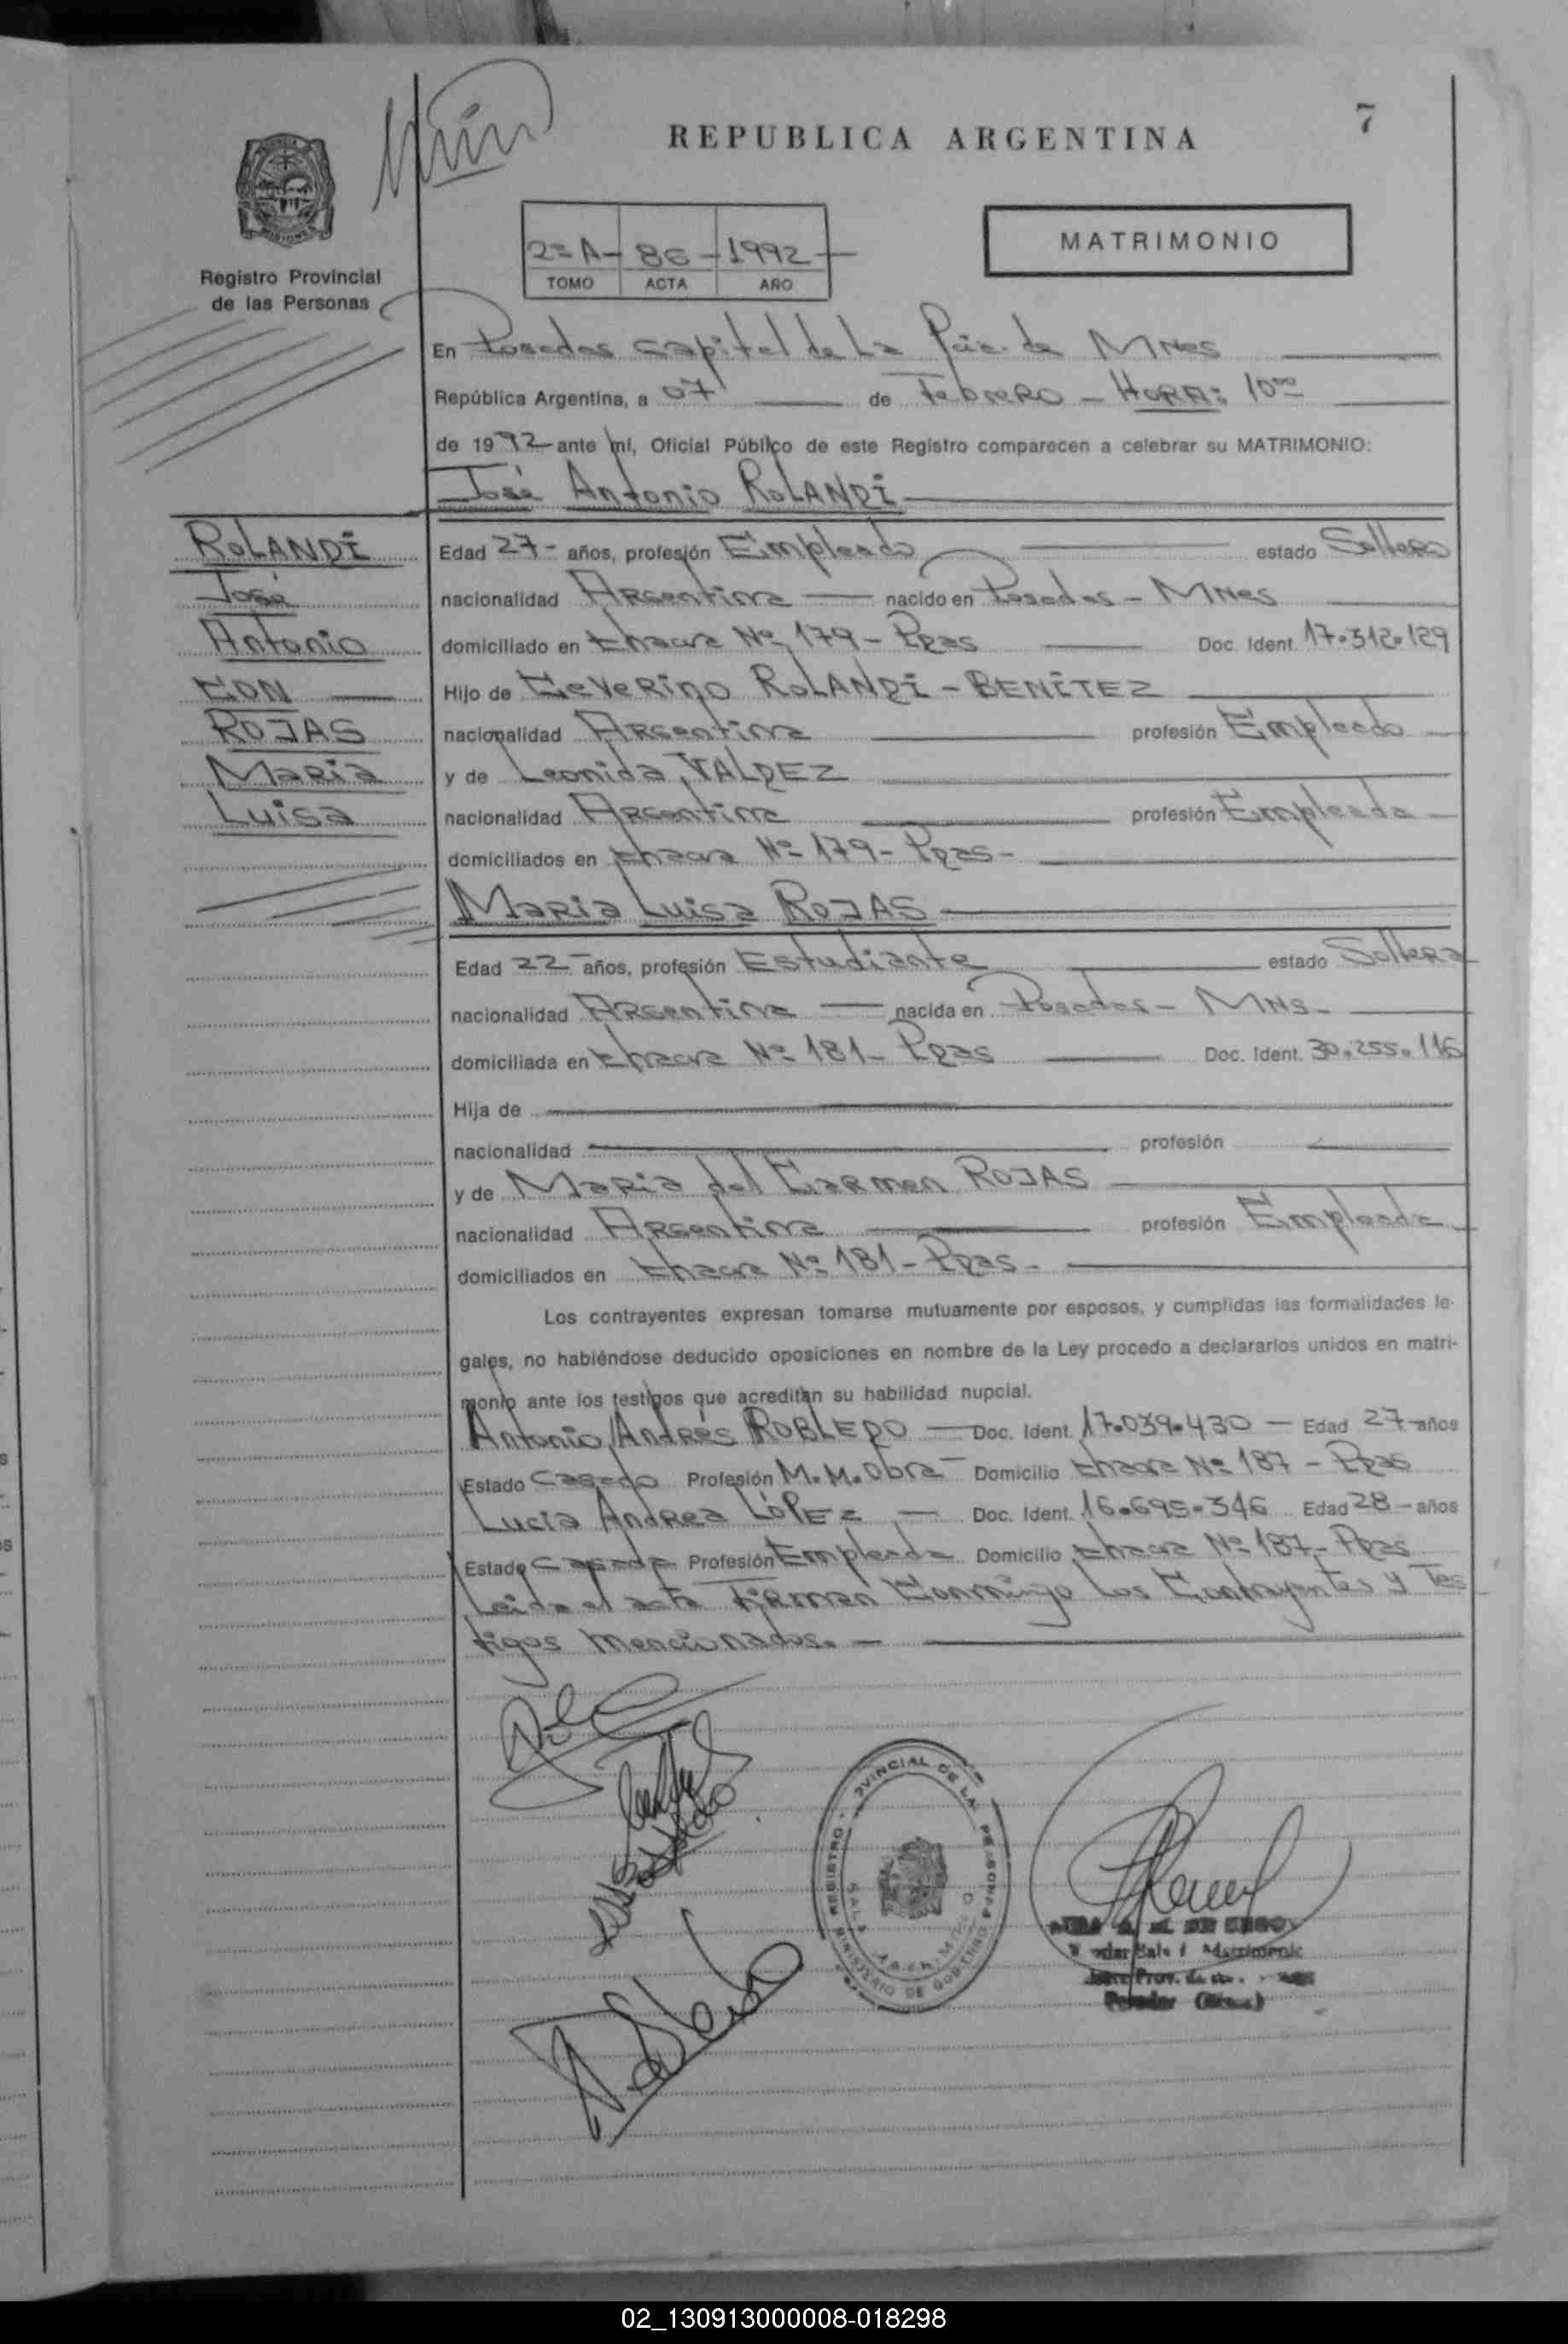 7
REPUBLICA ARGENTINA
MISIONES
Registro Provincial
de las Personas
2º A - 86 - 1992
TOMO ACTA AÑO
MATRIMONIO
En Posadas Capital de La Pcia. de MNes
República Argentina, a 07 de Febrero - HORA: 10ºº
de 1992 ante mí, Oficial Público de este Registro comparecen a celebrar su MATRIMONIO:
José Antonio ROLANDI
ROLANDI
José
Antonio
CON
ROJAS
María
Luisa
Edad 27- años, profesión Empleado estado Soltero
nacionalidad Argentina nacido en Posadas - MNes
domiciliado en Chacra Nº 179 - Pdas Doc. Ident. 17.312.129
Hijo de Ceverino ROLANDI - BENITEZ
nacionalidad Argentina profesión Empleado
y de Leonida VALDEZ
nacionalidad Argentina profesión Empleada
domiciliados en Chacra Nº 179 - Pdas-
María Luisa ROJAS
Edad 22 años, profesión Estudiante estado Soltera
nacionalidad Argentina nacida en Posadas - MNs-
domiciliada en Chacra Nº 181- Pdas Doc. Ident. 30.255.116
Hija de
nacionalidad profesión
y de María del Carmen ROJAS
nacionalidad Argentina profesión Empleada
domiciliados en Chacra Nº 181 - Pdas-
Los contrayentes expresan tomarse mutuamente por esposos, y cumplidas las formalidades le-
gales, no habiéndose deducido oposiciones en nombre de la Ley procedo a declararlos unidos en matri-
monio ante los testigos que acreditan su habilidad nupcial.
Antonio Andrés ROBLEDO - Doc. Ident. 17.039.430 - Edad 27 años
Estado Casado Profesión M.M.Obra Domicilio Chacra Nº 187 - Pdas
Lucia Andrea LÓPEZ - Doc. Ident. 16.695.346 Edad 28 - años
Estado Casada Profesión Empleada Domicilio Chacra Nº 187- Pdas
Leida el acta Firman Conmigo Los Contrayentes y Tes
tigos mencionados. -
REGISTRO PROVINCIAL DE LAS PERSONAS
MINISTERIO DE GOBIERNO
02_130913000008-018298